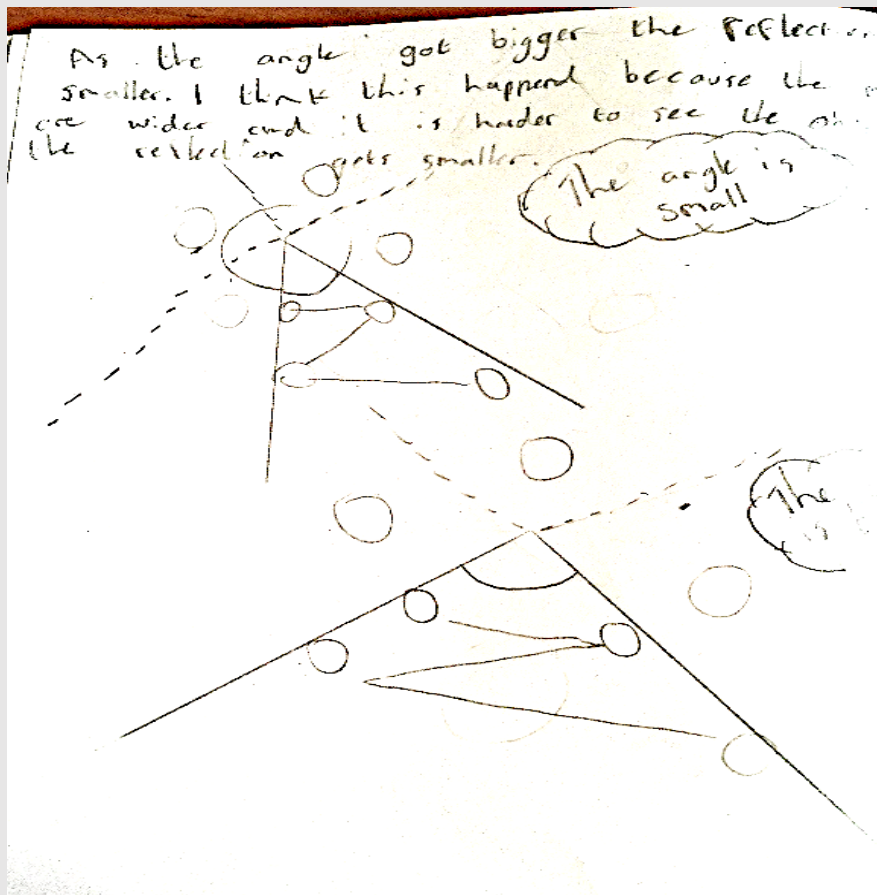 As the angle got bigger the reflect
smaller. I think this happend because the
are wider and it is harder to see the
the reflection gets smaller.
The angle is
small
The
is